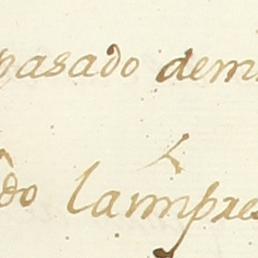 pasado demi
do laimpre